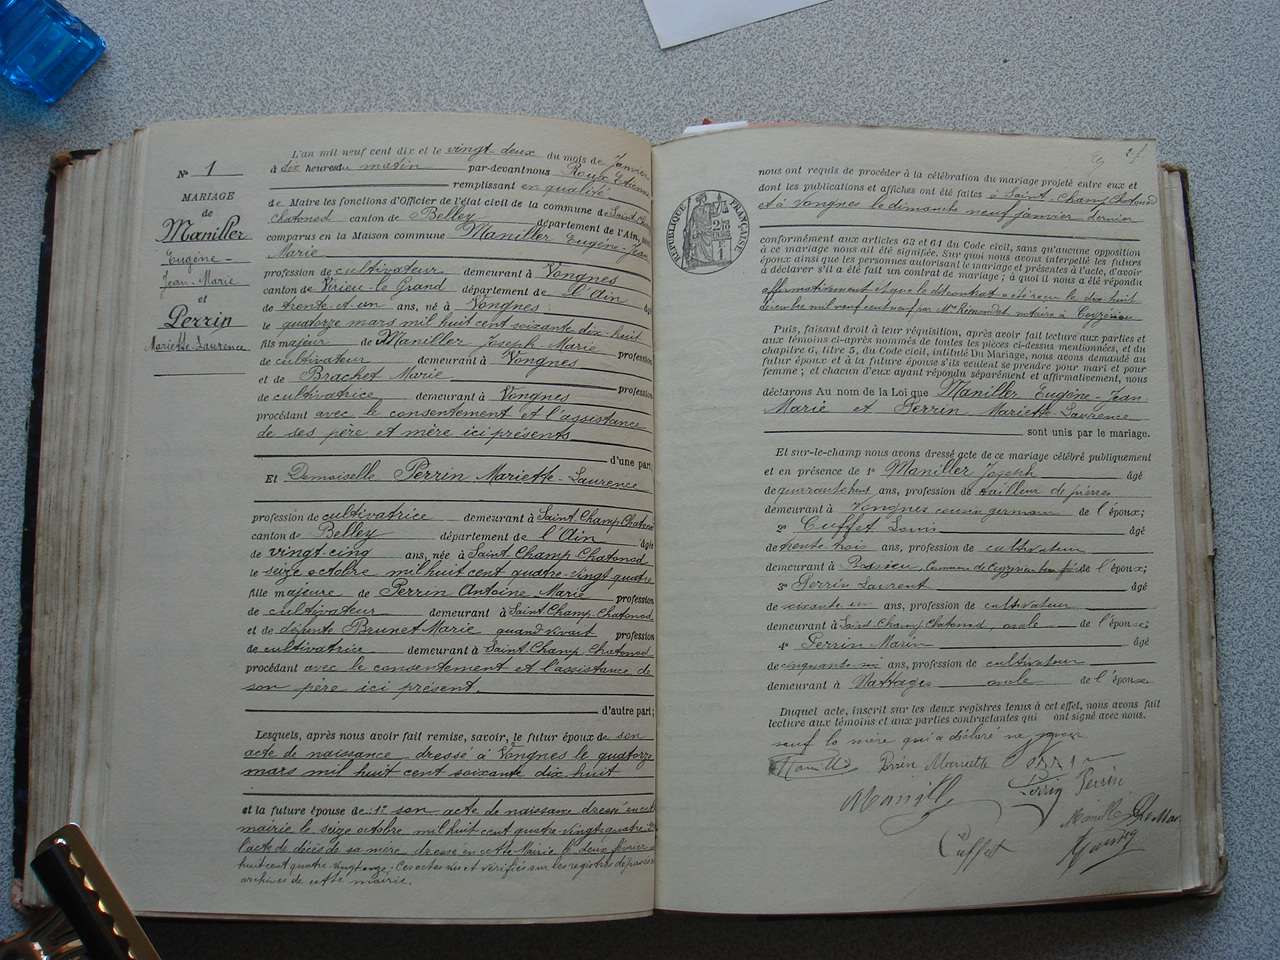 Nº 1
MARIAGE
de
Maniller
Eugène-
Jean-Marie
et
Perrin
Mariette-Laurence
L'an mil neuf cent dix et le vingt-deux du mois de Janvier
à dix heures du matin par-devant nous Roux Etienne
remplissant en qualité
de Maire les fonctions d'Officier de l'état civil de la commune de Saint Champ
Chatonod canton de Belley département de l'Ain,
comparus en la Maison commune Maniller Eugène-Jean
Marie
profession de cultivateur demeurant à Vongnes
canton de Virieu-le-Grand département de l'Ain âgé
de trente et un ans, né à Vongnes
le quatorze mars mil huit cent soixante dix-huit
fils majeur de Maniller Joseph Marie profession
de cultivateur demeurant à Vongnes
et de Brachet Marie profession
de cultivatrice demeurant à Vongnes
procédant avec le consentement et l'assistance
de ses père et mère ici présents
d'une part,
Et Demoiselle Perrin Mariette-Laurence
profession de cultivatrice demeurant à Saint Champ Chatonod
canton de Belley département de l'Ain âgée
de vingt-cinq ans, née à Saint Champ Chatonod
le seize octobre mil huit cent quatre-vingt quatre
fille majeure de Perrin Antoine Marie profession
de cultivateur demeurant à Saint Champ Chatonod
et de défunte Brunet Marie quand vivait profession
de cultivatrice demeurant à Saint Champ Chatonod
procédant avec le consentement et l'assistance de
son père ici présent.
d'autre part;
Lesquels, après nous avoir fait remise, savoir, le futur époux de son
acte de naissance dressé à Vongnes le quatorze
mars mil huit cent soixante dix huit
et la future épouse de: 1º son acte de naissance dressé en cette
mairie le seize octobre mil huit cent quatre vingt quatre 2º
l'acte de décès de sa mère dressé en cette Mairie le deux février
huit cent quatre vingt onze. Ces actes lus et vérifiés sur les registres déposés aux
archives de cette mairie.
27
RÉPUBLIQUE FRANÇAISE
nous ont requis de procéder à la célébration du mariage projeté entre eux et
dont les publications et affiches ont été faites à Saint-Champ Chatonod
et à Vongnes le dimanche neuf janvier dernier
conformément aux articles 63 et 64 du Code civil, sans qu'aucune opposition
à ce mariage nous ait été signifiée. Sur quoi nous avons interpellé les futurs
époux ainsi que les personnes autorisant le mariage et présentes à l'acte, d'avoir
à déclarer s'il a été fait un contrat de mariage; à quoi il nous a été répondu
affirmativement et que le dit contrat a été reçu le dix huit
décembre mil neuf cent neuf par Me Rémondet notaire à Ceyzérieu
Puis, faisant droit à leur réquisition, après avoir fait lecture aux parties et
aux témoins ci-après nommés de toutes les pièces ci-dessus mentionnées, et du
chapitre 6, titre 5, du Code civil, intitulé Du Mariage, nous avons demandé au
futur époux et à la future épouse s'ils veulent se prendre pour mari et pour
femme; et chacun d'eux ayant répondu séparément et affirmativement, nous
déclarons Au nom de la Loi que Maniller Eugène-Jean-
Marie et Perrin Mariette-Laurence
sont unis par le mariage.
Et sur-le-champ nous avons dressé acte de ce mariage célébré publiquement
et en présence de 1º Maniller Joseph âgé
de quarante huit ans, profession de tailleur de pierres
demeurant à Vongnes cousin germain de l'époux;
2º Cuffet Louis âgé
de trente trois ans, profession de cultivateur
demeurant à commune de Ceyzérieu de l'époux;
3º Perrin Laurent âgé
de soixante un ans, profession de cultivateur
demeurant à Saint Champ Chatonod, oncle de l'épouse;
4º Perrin Marin âgé
de cinquante six ans, profession de cultivateur
demeurant à Nattages oncle de l'épouse
Duquel acte, inscrit sur les deux registres tenus à cet effet, nous avons fait
lecture aux témoins et aux parties contractantes qui ont signé avec nous.
sauf la mère qui a déclaré ne savoir
Perrin Mariette
Perrin Perrin
Maniller
Cuffet